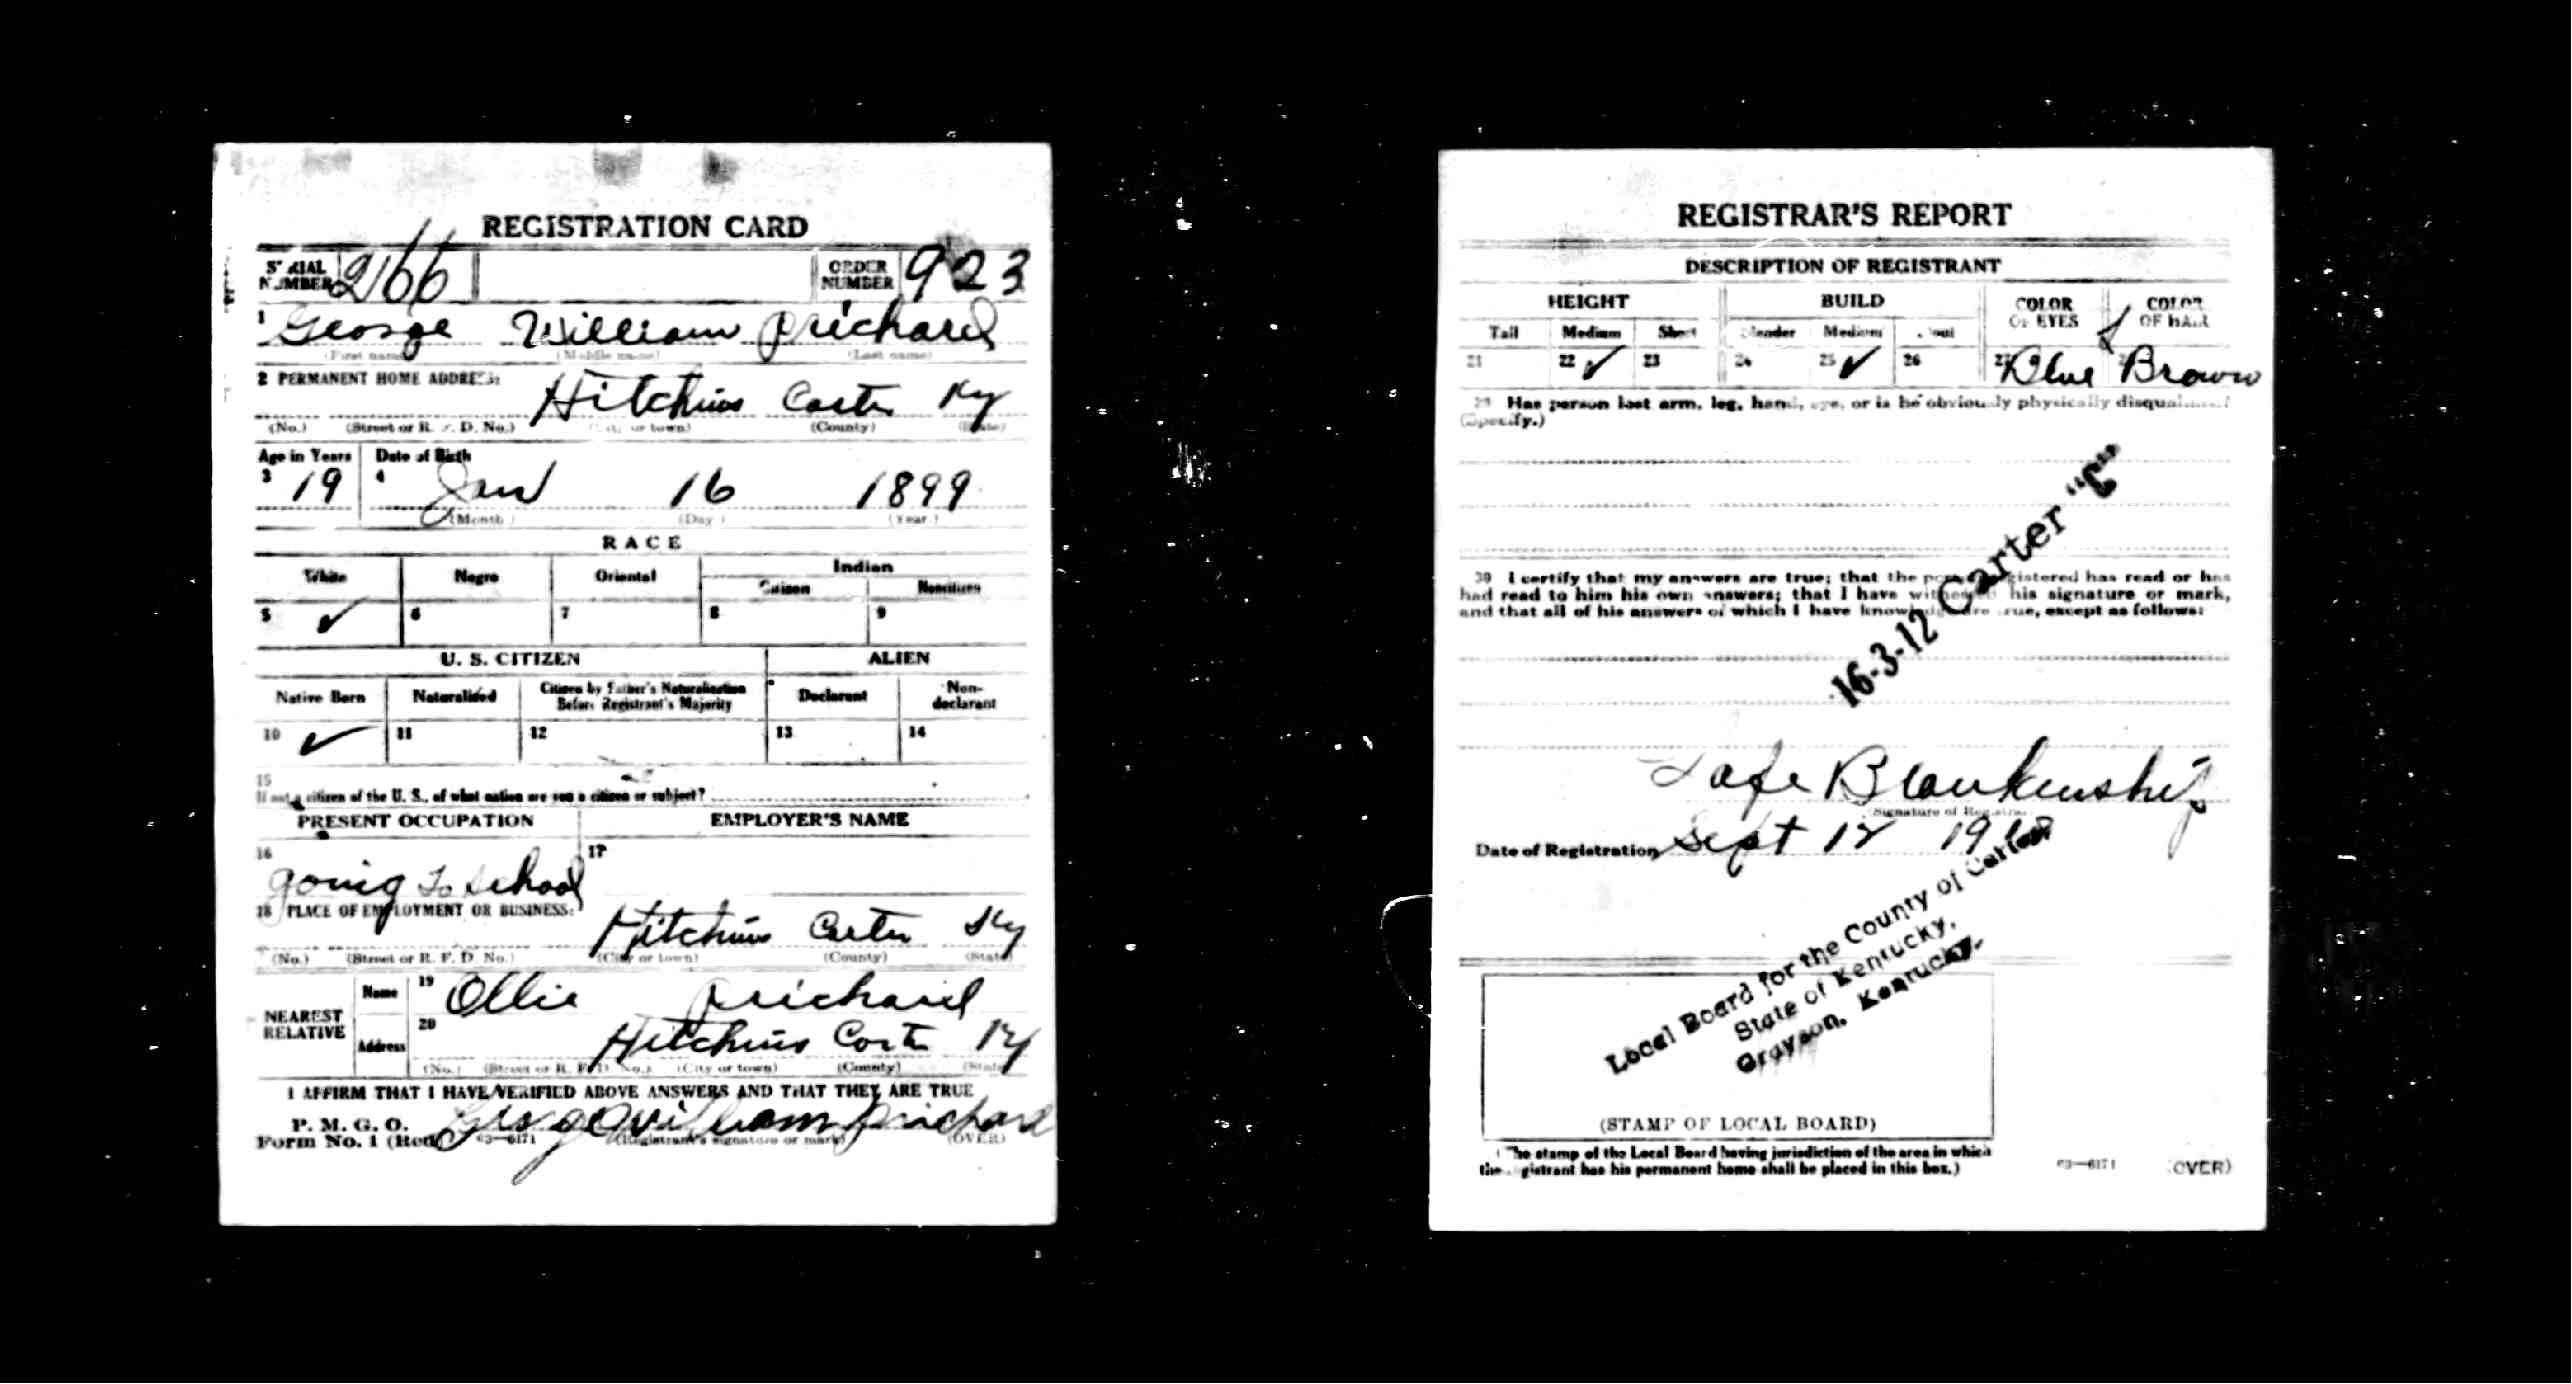 REGISTRATION CARD
SERIAL NUMBER 2166 ORDER NUMBER 923
1 George William Prichard
(First name) (Middle name) (Last name)
2 PERMANENT HOME ADDRESS:
Hitchins Carter Ky
(No.) (Street or R. F. D. No.) (City or town) (County) (State)
Age in Years Date of Birth
3 19 4 Jan 16 1899
(Month) (Day) (Year)
RACE
White Negro Oriental Indian
Citizen Noncitizen
5 ✓ 6 7 8 9
U. S. CITIZEN ALIEN
Native Born Naturalized Citizen by Father's Naturalization Before Registrant's Majority Declarant Non-declarant
10 ✓ 11 12 13 14
15
If not a citizen of the U. S., of what nation are you a citizen or subject?
PRESENT OCCUPATION EMPLOYER'S NAME
16 going to school 17
18 PLACE OF EMPLOYMENT OR BUSINESS:
Hitchins Carter Ky
(No.) (Street or R. F. D. No.) (City or town) (County) (State)
NEAREST RELATIVE Name 19 Ollie Prichard
Address 20 Hitchins Carter Ky
(No.) (Street or R. F. D. No.) (City or town) (County) (State)
I AFFIRM THAT I HAVE VERIFIED ABOVE ANSWERS AND THAT THEY ARE TRUE
P. M. G. O.
Form No. 1 (Red) 03—6171 George William Prichard
(Registrant's signature or mark) (OVER)
REGISTRAR'S REPORT
DESCRIPTION OF REGISTRANT
HEIGHT BUILD COLOR OF EYES COLOR OF HAIR
Tall Medium Short Slender Medium Stout
21 22 ✓ 23 24 25 ✓ 26 27 Blue Brown
29 Has person lost arm, leg, hand, eye, or is he obviously physically disqualified?
(Specify.)
30 I certify that my answers are true; that the person registered has read or has
had read to him his own answers; that I have witnessed his signature or mark,
and that all of his answers of which I have knowledge are true, except as follows:
16-3-12 Carter "C"
Blankenship
(Signature of Registrar)
Date of Registration Sept 12 1918
Local Board for the County of Carter
State of Kentucky,
Grayson, Kentucky.
(STAMP OF LOCAL BOARD)
(The stamp of the Local Board having jurisdiction of the area in which
the registrant has his permanent home shall be placed in this box.)
03—6171 (OVER)